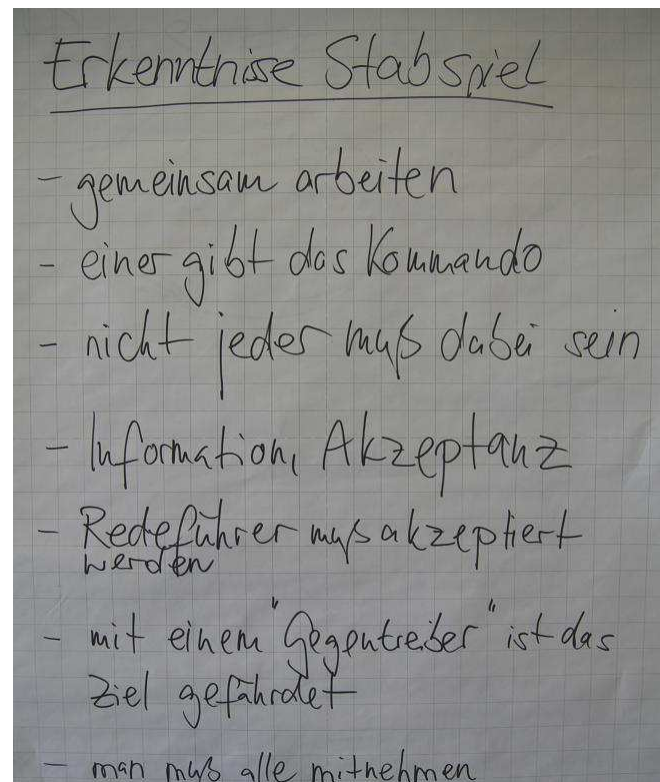 Erkenntnise Stabspiel
- gemeinsam arbeiten
- einer gibt das Kommando
- nicht jeder muß dabei sein
- Information, Akzeptanz
- Redeführer muß akzeptiert
werden
- mit einem "Gegentreiber" ist das
Ziel gefährdet
- man muß alle mitnehmen